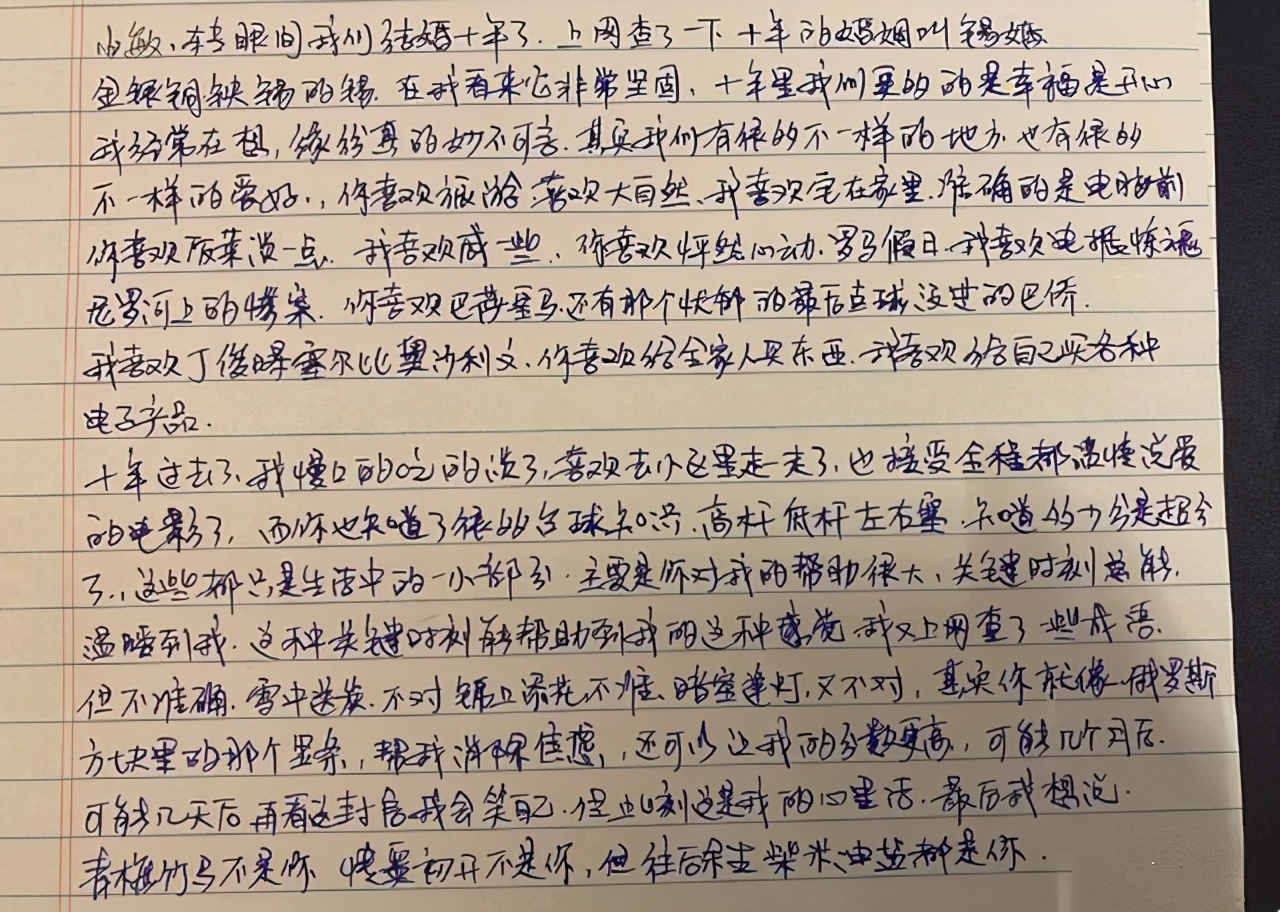 小敏、转眼间我们结婚十年了. 上网查了一下十年的婚姻叫锡婚
金银铜铁锡的锡. 在我看来它非常坚固, 十年里我们更多的是幸福是开心
我经常在想, 缘分真的妙不可言. 其实我们有很多不一样的地方也有很多
不一样的爱好., 你喜欢旅游 喜欢大自然、我喜欢宅在家里. 准确的是电脑前
你喜欢饭菜淡一点. 我喜欢咸一些., 你喜欢怦然心动. 罗马假日. 我喜欢电锯惊魂
尼罗河上的惨案. 你喜欢巴蒂星马. 还有那个忧郁的最后点球没进的巴乔.
我喜欢丁俊晖塞尔比奥沙利文. 你喜欢给全家人买东西. 我喜欢给自己买各种
电子产品.
十年过去了. 我慢慢的吃的淡了, 喜欢去小区里走一走了, 也接受全程都谈情说爱
的电影了, 而你也知道了很多台球知识. 高杆低杆左右塞. 知道多少分是超分
了., 这些都只是生活中的一小部分. 主要是你对我的帮助很大、关键时刻总能.
温暖到我. 这种关键时刻能帮助到我的这种感觉. 我又上网查了一些成语.
但不准确. 雪中送炭. 不对 锦上添花不准. 暗室逢灯, 又不对, 其实你就像 俄罗斯
方块里的那个竖条, 帮我消除焦虑, 还可以让我的分数更高, 可能几个月后.
可能几天后 再看这封信我会笑自己. 但此刻这是我的心里话. 最后我想说.
青梅竹马不是你 情窦初开不是你, 但往后余生柴米油盐都是你.